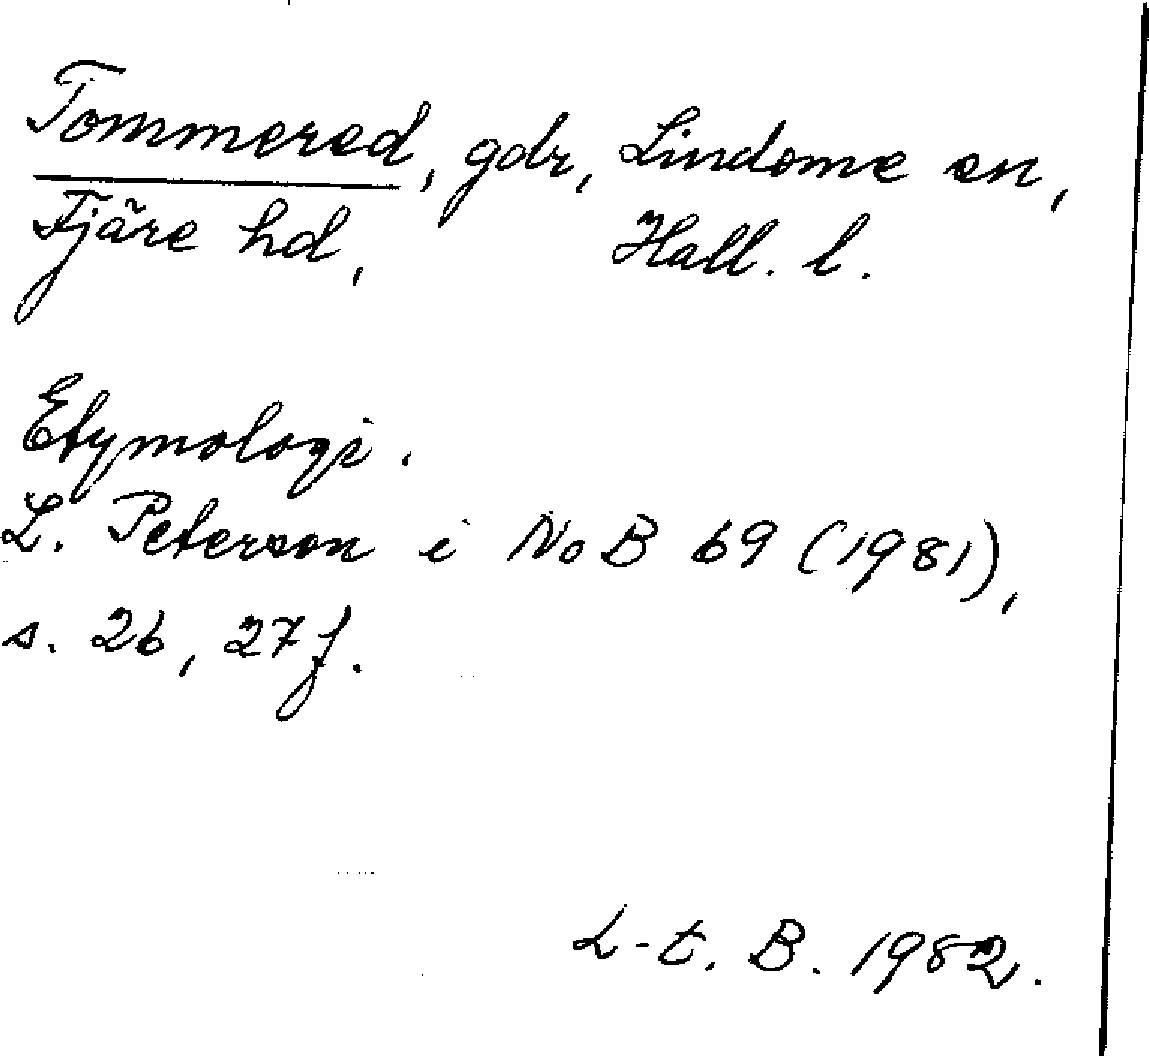 Tommered, gdr, Lindome sn,
Fjäre hd, Hall. l.
Etymologi.
L. Peterson i NoB 69 (1981),
s. 26, 27 f.
L-t. B. 1982.